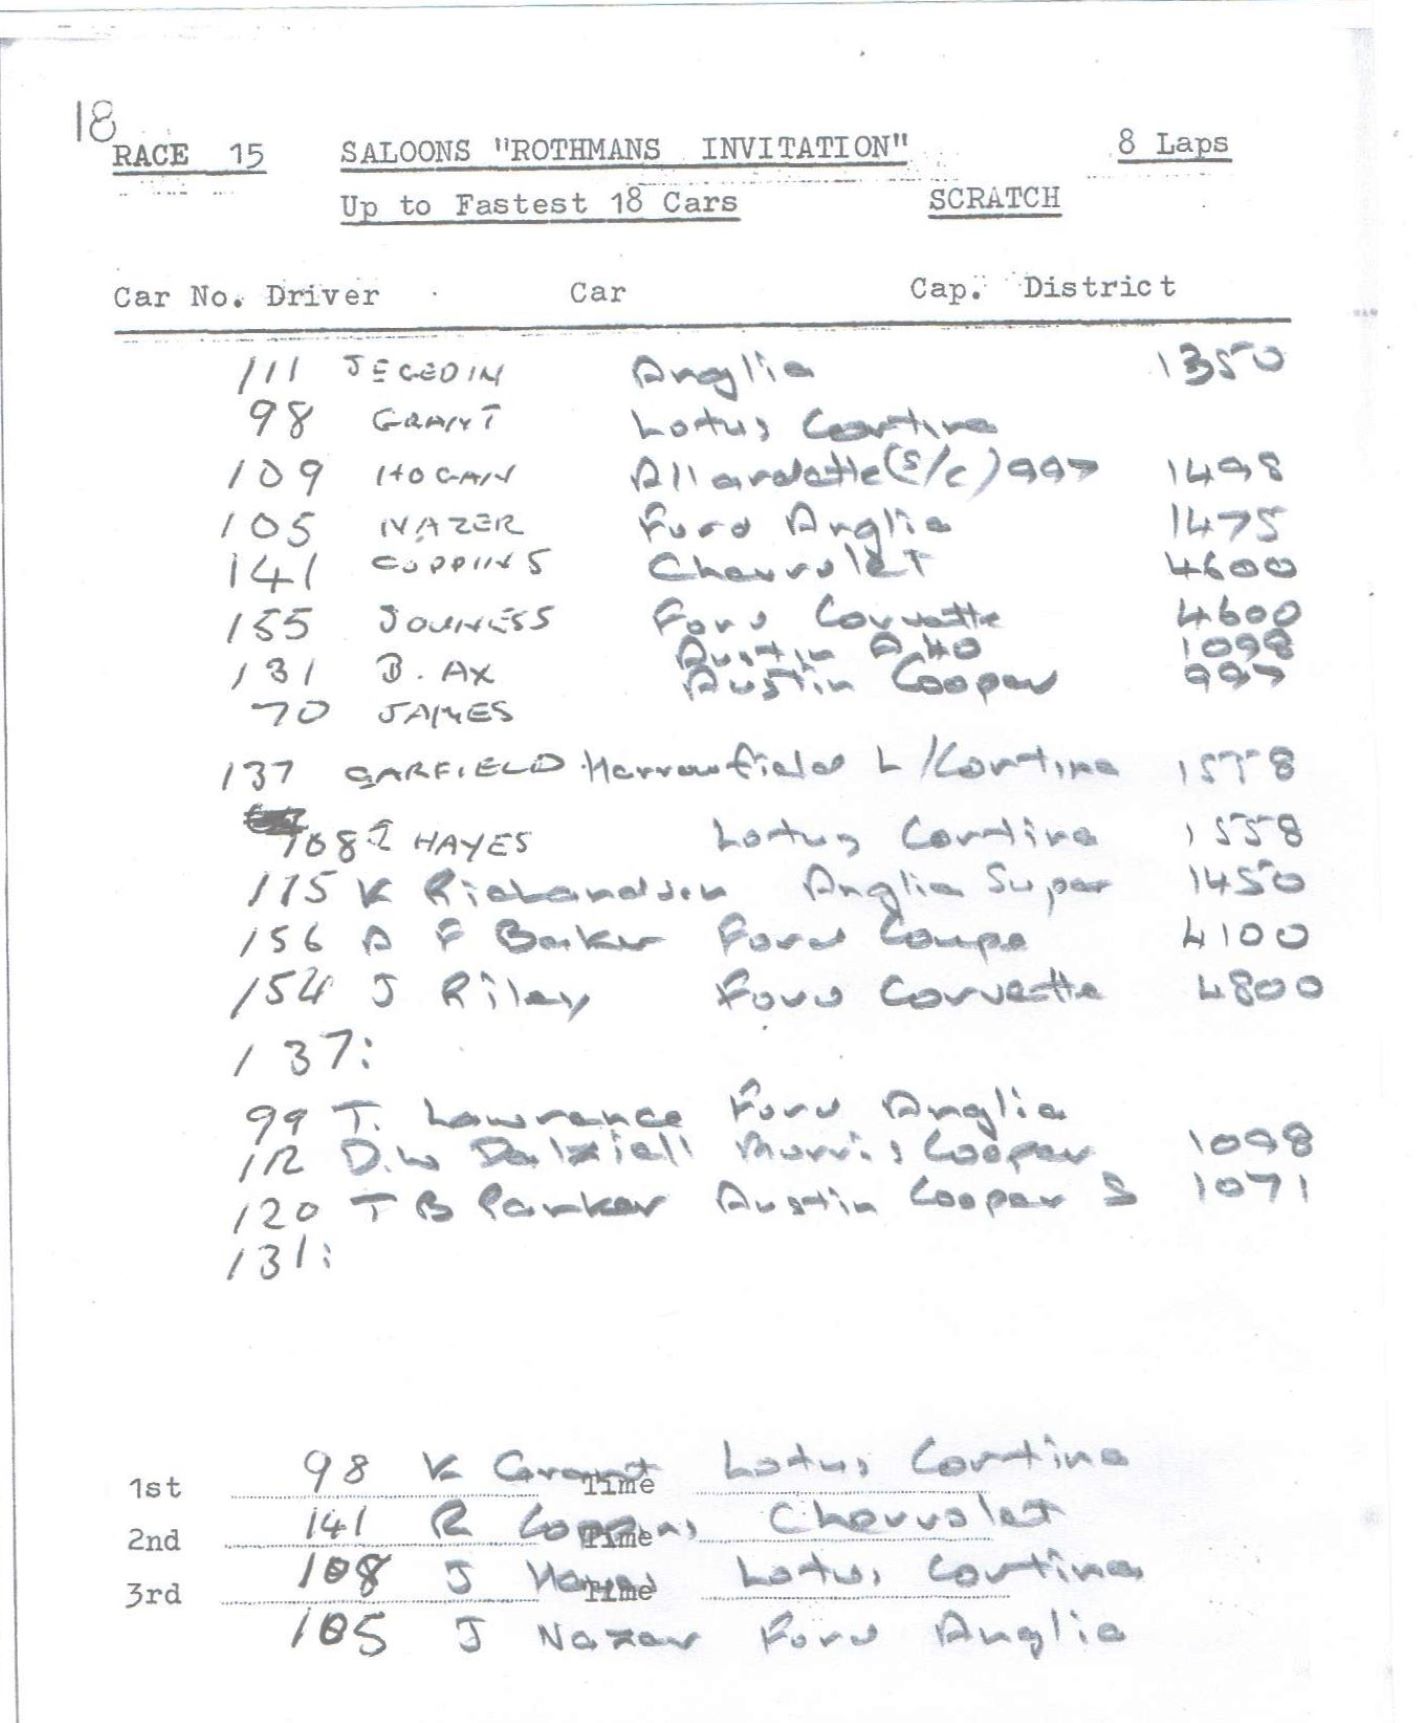 18
RACE 15 SALOONS "ROTHMANS INVITATION" 8 Laps
Up to Fastest 18 Cars SCRATCH
Car No. Driver Car Cap. District
111 JEGEDIN Anglia 1350
98 GRANT Lotus Cortina
109 HOGAN Allardette (s/c) 997 1498
105 NAZER Ford Anglia 1475
141 COPPINS Chevrolet 4600
155 Ford Corvette 4600
Austin A.40 1098
131 B. AX Austin Cooper 997
70 JAMES
137 GARFIELD Harrowfield L/Cortina 1558
108 J HAYES Lotus Cortina 1558
115 K Richardson Anglia Super 1450
156 A F Barker Ford Coupe 4100
154 J Riley Ford Corvette 4800
137:
99 T. Lawrence Ford Anglia
112 D.W Dalziell Morris Cooper 1098
120 T B Parker Austin Cooper S 1071
131:
1st 98 K Grant Time Lotus Cortina
2nd 141 R Coppins Time Chevrolet
3rd 108 J Hayes Time Lotus Cortina
105 J Nazer Ford Anglia